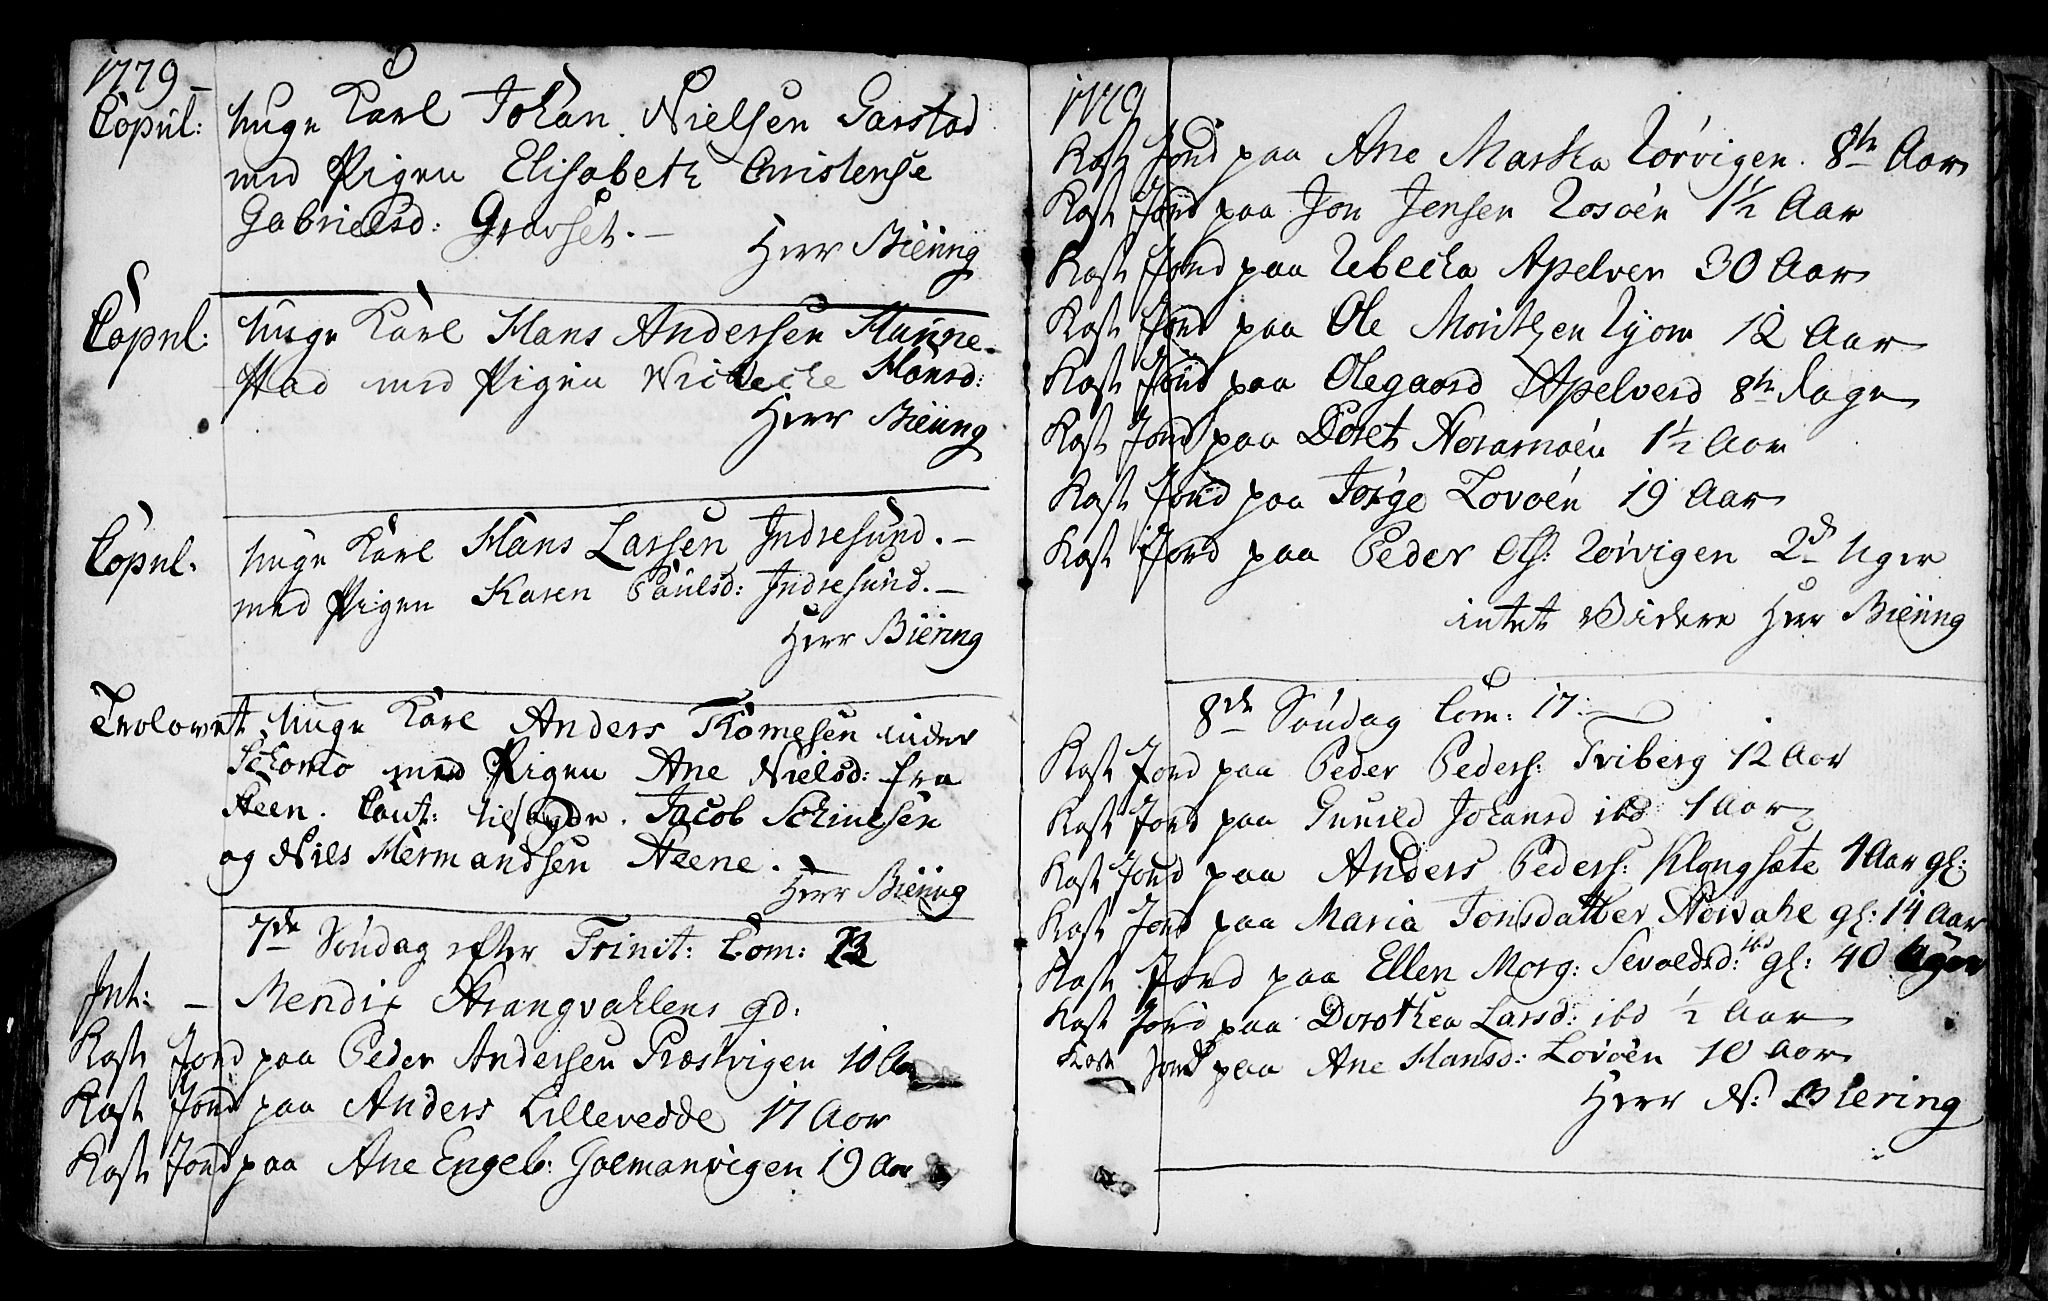 1779
Copul: Unge Karl Johan Nielsen Garstad
med Pigen Elisabeth Christense
Gabrielsd: Gravset.
Herr Biering
Copul: Unge Karl Hans Andersen Hanne-
stad med Pigen Wibecke Hansd:
Herr Biering
Copul. Unge Karl Hans Larsen Indresund.
med Pigen Karen Paulsd: Indresund.
Herr Biering
Trolovet Unge Karl Anders Thomesen inder
Schomo med Pigen Ane Nielsd: fra
Steen. Caut: Jacob Schinesen
og Niels Hermandsen Steene.
Herr Biering
7de Söndag efter Trinit: Com: 13
Int: Strangvahlens gd.
Kast Jord paa Peder Andersen Præstvigen 10 Aar
Kast Jord paa Anders Lillevedde 17 Aar
Kast Jord paa Ane Engeb: Holmanvigen 19 Aar
1779
Kast Jord paa Ane Martha Rörvigen. 8te Aar
Kast Jord paa Jon Jensen Rosöen 1½ Aar
Kast Jord paa Rebecka Apelver 30 Aar
Kast Jord paa Ole Moritzen Ryom 12 Aar
Kast Jord paa Olegaard Apelverd 8te Dage
Kast Jord paa Doret 1½ Aar
Kast Jord paa Torge Lovöen 19 Aar
Kast Jord paa Peder Ols: Rörvigen 2de Uger
intet Videre Herr Biering
8de Söndag Com: 17:
Kast Jord paa Peder Peders: Friberg 12 Aar
Kast Jord paa Gunild Johansd ibd 1 Aar
Kast Jord paa Anders Peders: Klongsæte 1 Aar gl:
Kast Jord paa Maria Tonsdatter gl: 14 Aar
Kast Jord paa Ellen Marg: Sevaldsd: ibd gl: 40 Uger
Kast Jord paa Dorothea Larsd: ibd ½ Aar
Kast Jord paa Ane Hansd: Lovöen 10 Aar
Herr N: Biering